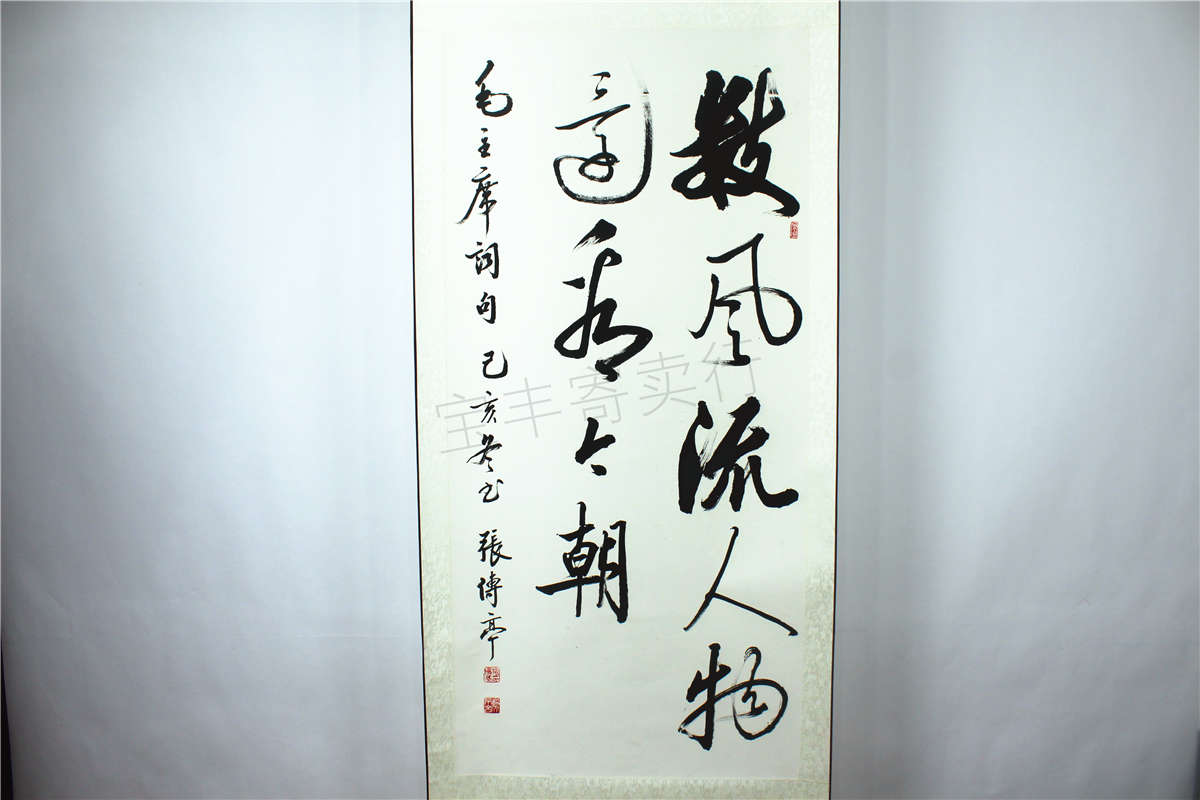 數風流人物
還看今朝
毛主席詞句 己亥冬书 張傳亭
宝丰寄卖行